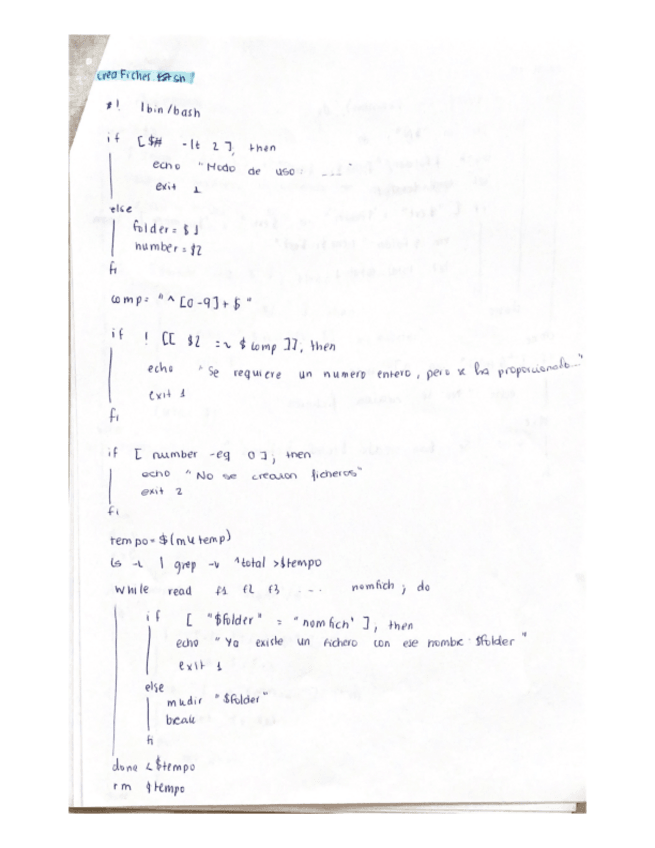 creaFiches.sh
#! /bin/bash
if [ $# -lt 2 ], then
echo "Modo de uso: ....."
exit 1
else
folder = $1
number = $2
fi
comp = "^[0-9]+$"
if ! [[ $2 =~ $comp ]], then
echo "Se requiere un numero entero, pero se ha proporcionado..."
exit 1
fi
if [ number -eq 0 ]; then
echo "No se crearon ficheros"
exit 2
fi
tempo = $(mktemp)
ls -l | grep -v ^total >$tempo
while read f1 f2 f3 .... nomfich ; do
if [ "$folder" = "nomfich" ], then
echo "Ya existe un fichero con ese nombre: $folder"
exit 1
else
mkdir "$folder"
break
fi
done < $tempo
rm $tempo